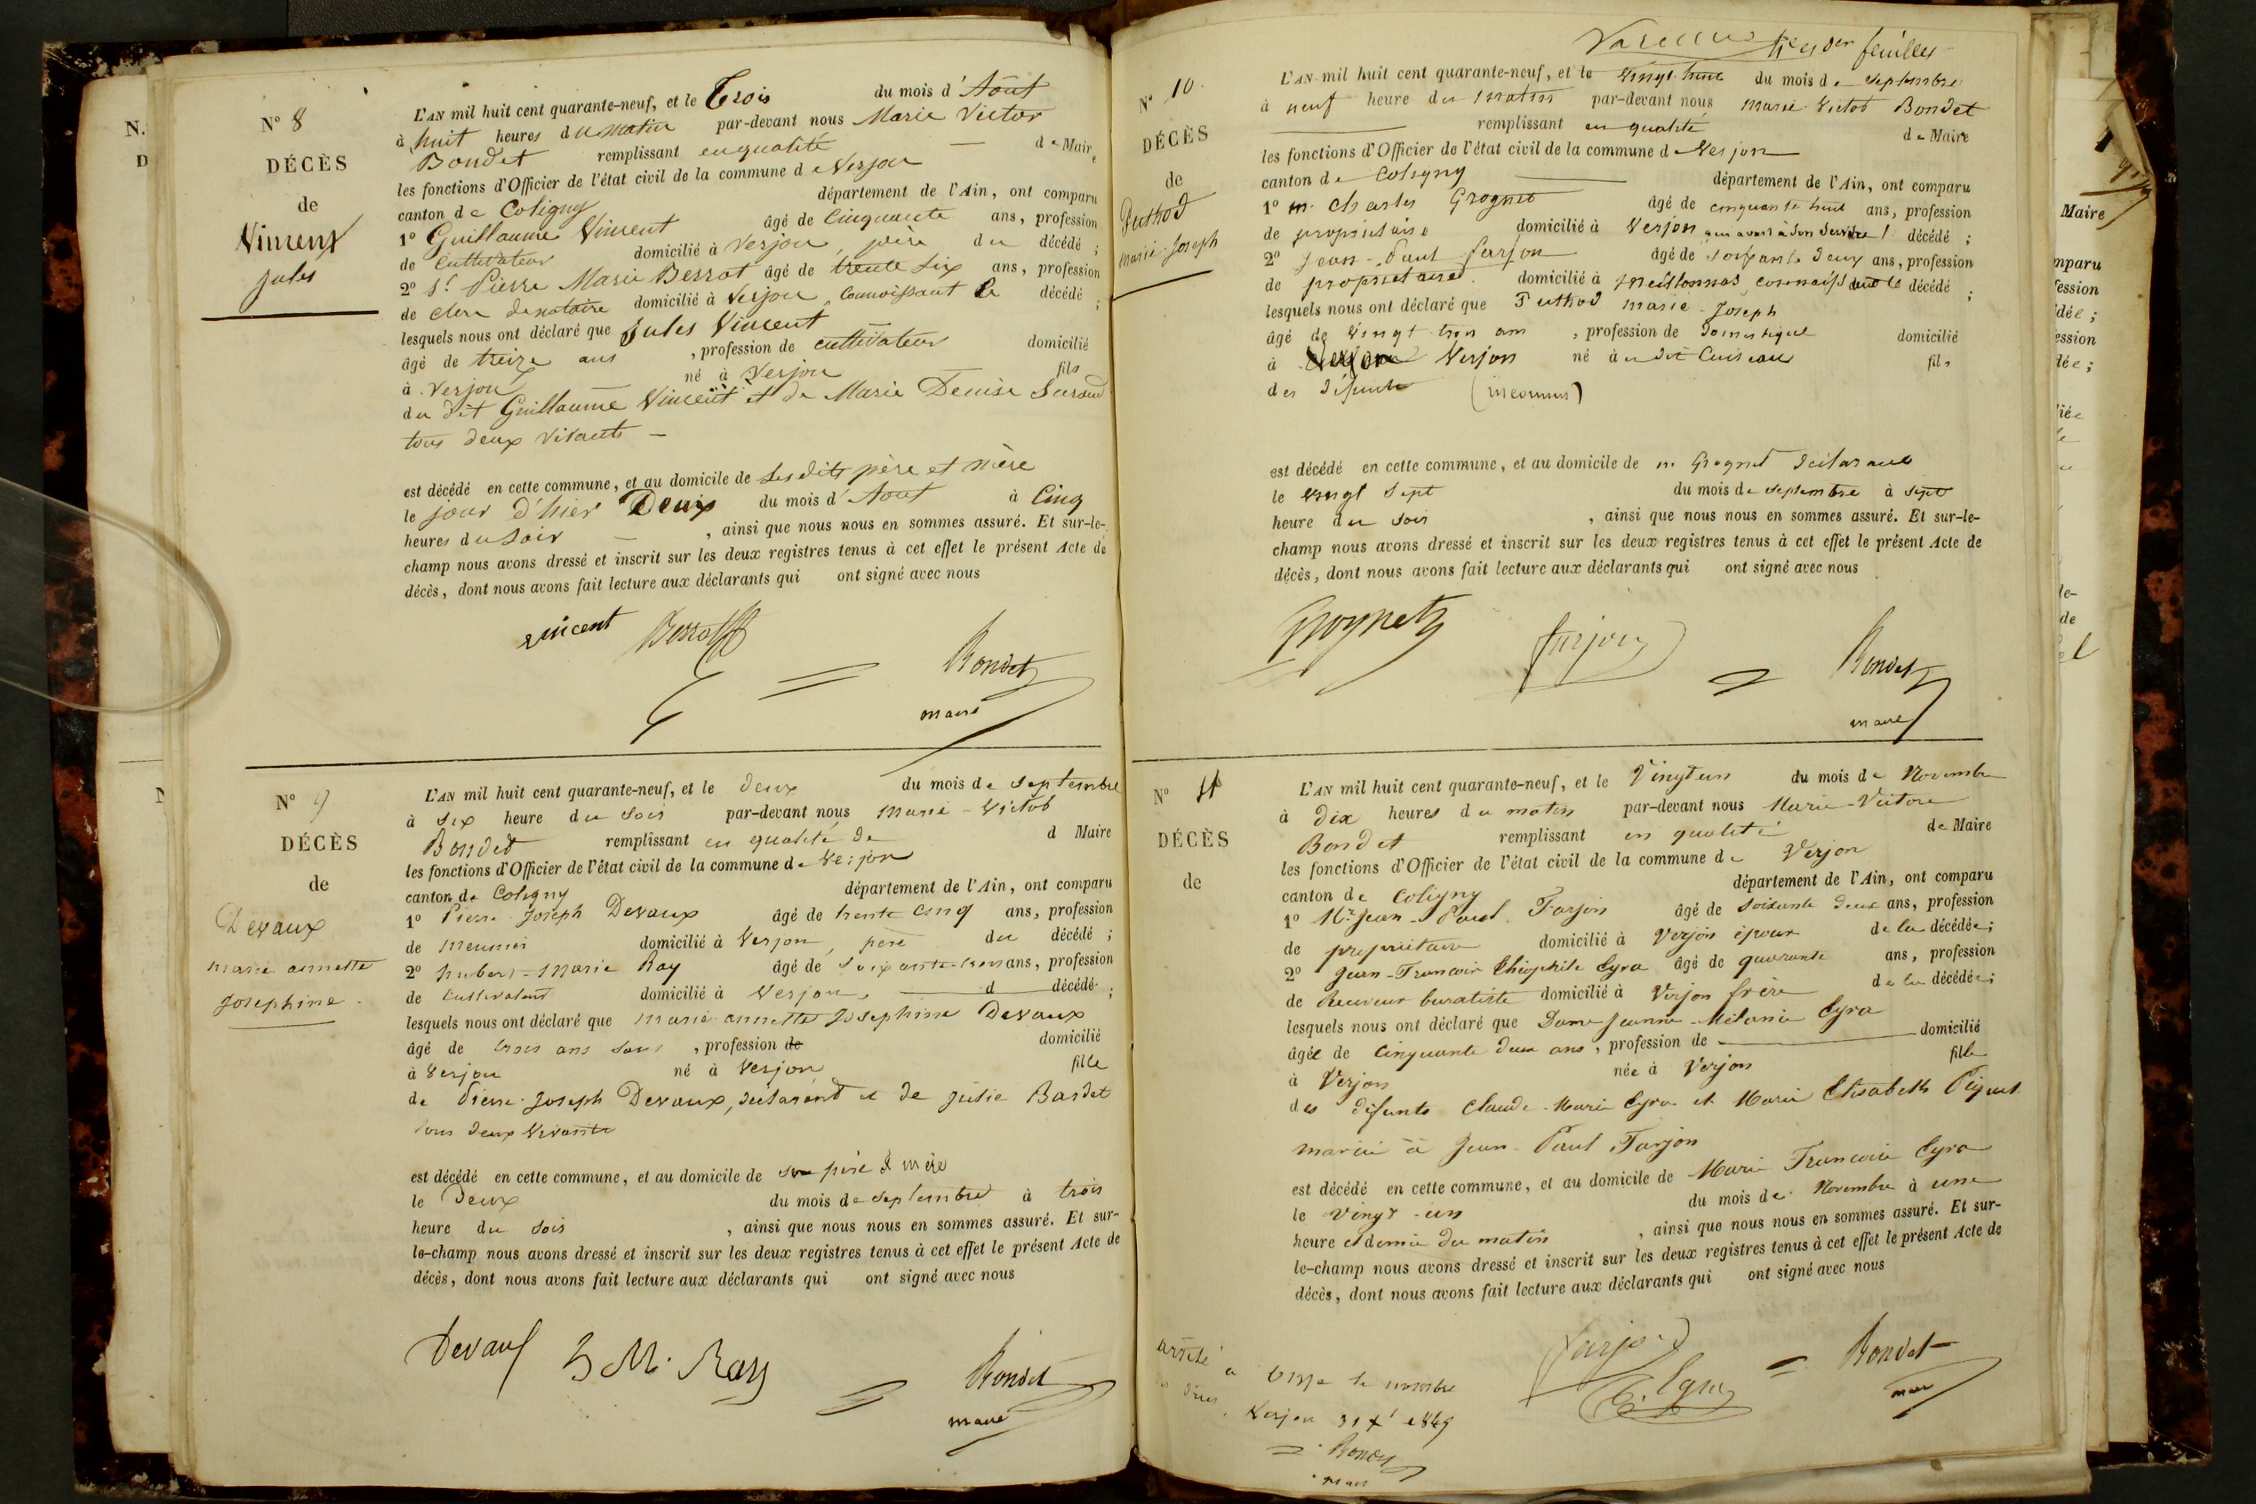 N° 8
DÉCÈS
de
Vincent
Jules
L'AN mil huit cent quarante-neuf, et le Trois du mois d'Aout
à huit heures du matin par-devant nous Marie Victor
Bondet remplissant en qualité de Maire
les fonctions d'Officier de l'état civil de la commune de Verjon
canton de Coligny département de l'Ain, ont comparu
1° Guillaume Vincent âgé de Cinquante ans, profession
de Cultivateur domicilié à Verjon, père du décédé ;
2° Sr Pierre Marie Berrot âgé de trente six ans, profession
de clerc de notaire domicilié à Verjon, connoissant le décédé ;
lesquels nous ont déclaré que Jules Vincent
âgé de treize ans, profession de cultivateur domicilié
à Verjon né à Verjon fils
du dit Guillaume Vincent et de Marie Denise
tous deux vivants
est décédé en cette commune, et au domicile de ses dits père et mère
le jour d'hier Deux du mois d'Aout à Cinq
heures du soir, ainsi que nous nous en sommes assuré. Et sur-le-
champ nous avons dressé et inscrit sur les deux registres tenus à cet effet le présent Acte de
décès, dont nous avons fait lecture aux déclarants qui ont signé avec nous
vincent Berrot Bondet
maire
N° 9
DÉCÈS
de
Devaux
marie annette
Josephine
L'AN mil huit cent quarante-neuf, et le deux du mois de septembre
à six heure du soir par-devant nous marie-Victor
Bondet remplissant en qualité de d Maire
les fonctions d'Officier de l'état civil de la commune de Verjon
canton de Coligny département de l'Ain, ont comparu
1° Pierre Joseph Devaux âgé de trente cinq ans, profession
de meunier domicilié à Verjon, père du décédé ;
2° hubert-marie Ray âgé de ans, profession
de cultivateur domicilié à Verjon, d décédé ;
lesquels nous ont déclaré que marie annette Josephine Devaux
âgé de trois ans, profession de domicilié
à Verjon né à Verjon fille
de Pierre Joseph Devaux, déclarant et de julie Bardet
tous deux vivants
est décédé en cette commune, et au domicile de son père & mère
le Deux du mois de septembre à trois
heure du soir, ainsi que nous nous en sommes assuré. Et sur-
le-champ nous avons dressé et inscrit sur les deux registres tenus à cet effet le présent Acte de
décès, dont nous avons fait lecture aux déclarants qui ont signé avec nous
Devaux h M. Ray Bondet
maire
feuilles
N° 10
DÉCÈS
de
Puthod
marie-Joseph
L'AN mil huit cent quarante-neuf, et le vingt huit du mois de septembre
à neuf heure du matin par-devant nous marie Victor Bondet
remplissant en qualité de Maire
les fonctions d'Officier de l'état civil de la commune de Verjon
canton de Coligny département de l'Ain, ont comparu
1° m. charles Grognet âgé de cinquante huit ans, profession
de propriétaire domicilié à Verjon qui avait à son service l décédé ;
2° Jean-Paul farjon âgé de soixante deux ans, profession
de propriétaire domicilié à meillonnas, connaissant le décédé ;
lesquels nous ont déclaré que Puthod marie-Joseph
âgé de vingt trois ans, profession de domestique domicilié
à Verjon né à Cuiseaux fils
des défunts (inconnus)
est décédé en cette commune, et au domicile de m. Grognet déclarant
le vingt sept du mois de septembre à sept
heure du soir, ainsi que nous nous en sommes assuré. Et sur-le-
champ nous avons dressé et inscrit sur les deux registres tenus à cet effet le présent Acte de
décès, dont nous avons fait lecture aux déclarants qui ont signé avec nous
Grognet farjon Bondet
maire
N° 11
DÉCÈS
de
L'AN mil huit cent quarante-neuf, et le Vingt un du mois de Novembre
à dix heures du matin par-devant nous Marie-Victor
Bondet remplissant en qualité de Maire
les fonctions d'Officier de l'état civil de la commune de Verjon
canton de Coligny département de l'Ain, ont comparu
1° Mr Jean-Paul Farjon âgé de soixante deux ans, profession
de propriétaire domicilié à Verjon époux de la décédée ;
2° Jean-François Théophile Cyra âgé de quarante ans, profession
de Receveur buraliste domicilié à Verjon frère de la décédée ;
lesquels nous ont déclaré que Dame Jeanne-Mélanie Cyra
âgée de cinquante deux ans, profession de domicilié
à Verjon née à Verjon fille
des défunts Claude-Marie Cyra et Marie Elisabeth
mariée à Jean-Paul Farjon
est décédé en cette commune, et au domicile de Marie Cyra
le vingt-un du mois de Novembre à une
heure et demie du matin, ainsi que nous nous en sommes assuré. Et sur-
le-champ nous avons dressé et inscrit sur les deux registres tenus à cet effet le présent Acte de
décès, dont nous avons fait lecture aux déclarants qui ont signé avec nous
farjon Bondet
maire
arrêté à onze le nombre
Verjon 31 Xbre 1849
Bondet
maire